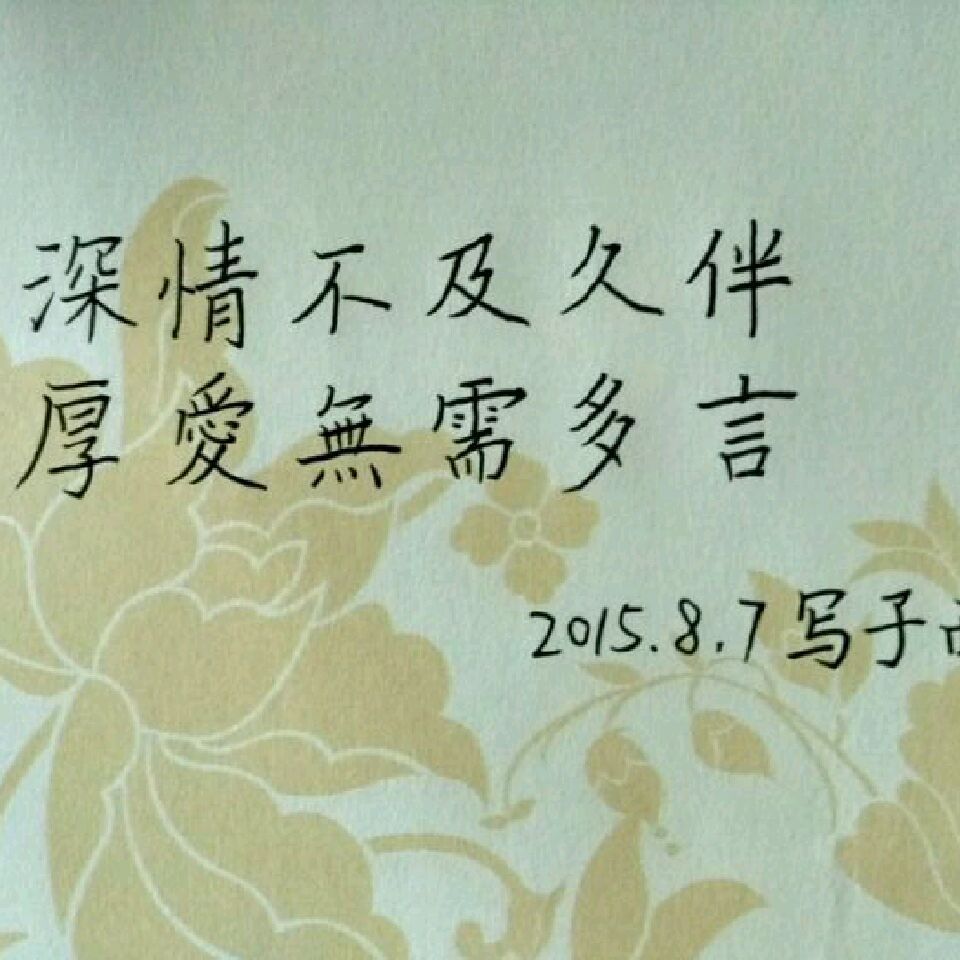 深情不及久伴
厚愛無需多言
2015.8.7写于